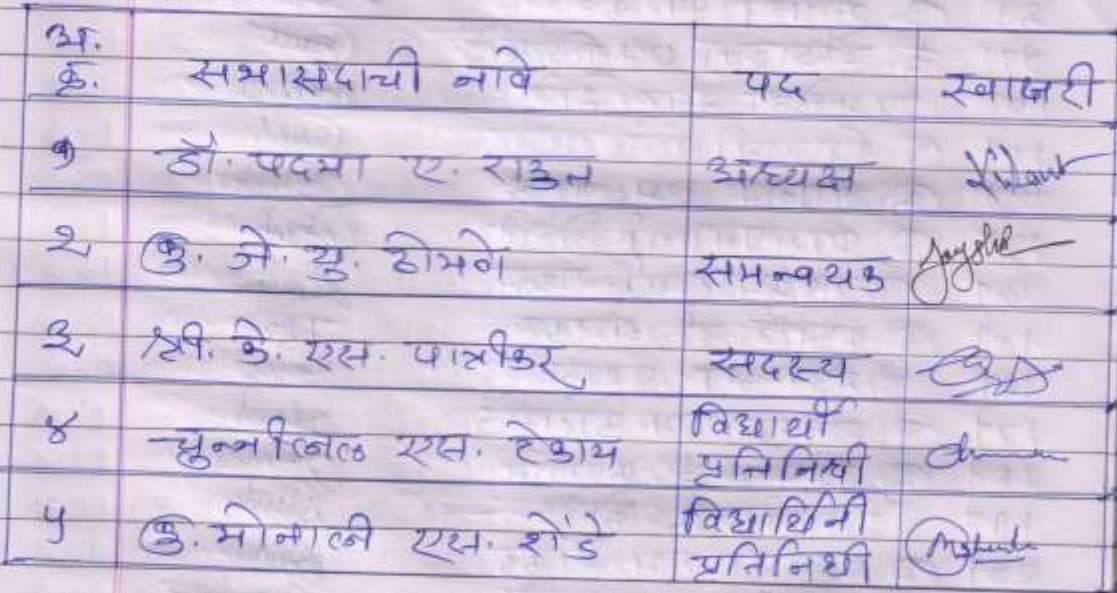 अ.
क्र. सभासदाची नावे पद स्वाक्षरी
१) डॉ. पदमा ए. राऊत अध्यक्ष
२ कु. जे. यु. ठोमणे समन्वयक Jayshri
३ श्री. के. एस. पात्रीकर सदस्य
४ चुन्नीलाल एस. टेकाम विद्यार्थी
प्रतिनिधी
५ कु. मोनाली एस. शेंडे विद्यार्थिनी
प्रतिनिधी